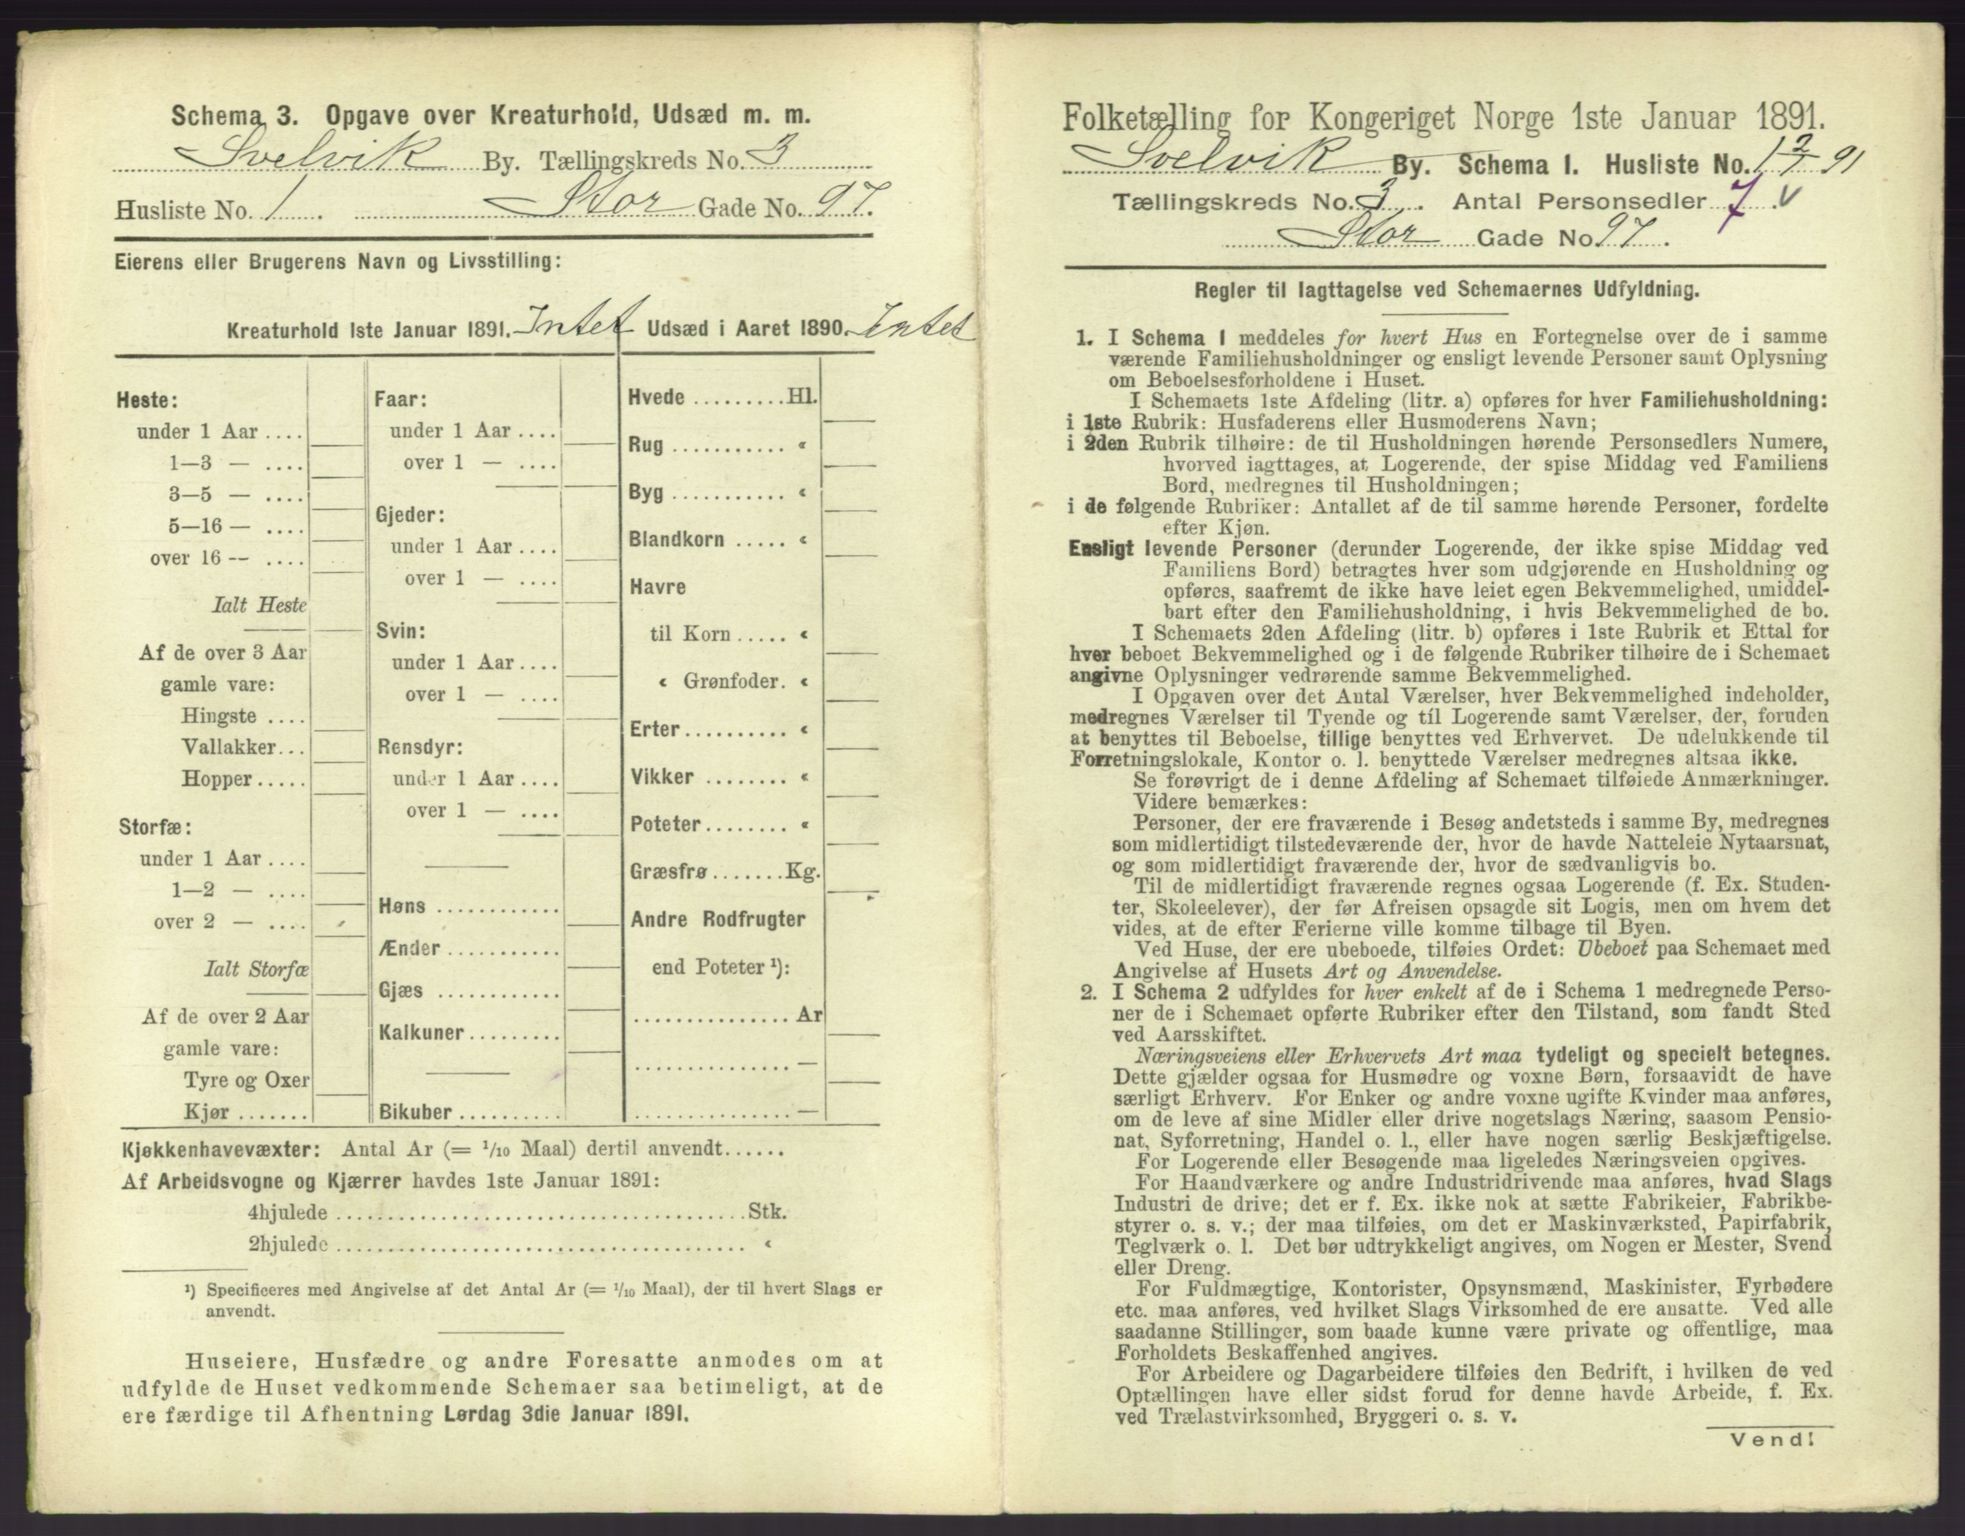 Schema 3. Opgave over Kreaturhold, Udsæd m. m.
Svelvik By. Tællingskreds No. 3
Husliste No. 1. Stor Gade No. 97.
Eierens eller Brugerens Navn og Livsstilling:
Kreaturhold 1ste Januar 1891. Intet
Heste:
under 1 Aar ....
1—3 — ....
3—5 — ....
5—16 — ....
over 16 -- ....
Ialt Heste
Af de over 3 Aar
gamle vare:
Hingste ....
Vallakker...
Hopper.....
Storfæ:
under 1 Aar ....
1—2 — ....
over 2 — ....
Ialt Storfæ
Af de over 2 Aar
gamle vare:
Tyre og Oxer
Kjør .......
Faar:
under 1 Aar ....
over 1 — ....
Gjeder:
under 1 Aar ....
over 1 — ....
Svin:
under 1 Aar ....
over 1 — ....
Rensdyr:
under 1 Aar ....
over 1 — ....
Høns ............
Ænder ...........
Gjæs ............
Kalkuner.........
Bikuber ..........
Udsæd i Aaret 1890. Intet
Hvede .........Hl.
Rug ........... «
Byg ........... «
Blandkorn ..... «
Havre
til Korn ..... «
« Grønfoder. «
Erter.......... «
Vikker ........ «
Poteter........ «
Græsfrø.......Kg.
Andre Rodfrugter
end Poteter ¹):
............... Ar
............... —
............... —
Kjøkkenhavevæxter: Antal Ar (= 1/10 Maal) dertil anvendt......
Af Arbeidsvogne og Kjærrer havdes 1ste Januar 1891:
4hjulede ........................................ Stk.
2hjulede ........................................ «
¹) Specificeres med Angivelse af det Antal Ar (= 1/10 Maal), der til hvert Slags er
anvendt.
Huseiere, Husfædre og andre Foresatte anmodes om at
udfylde de Huset vedkommende Schemaer saa betimeligt, at de
ere færdige til Afhentning Lørdag 3die Januar 1891.
Folketælling for Kongeriget Norge 1ste Januar 1891.
Svelvik By. Schema I. Husliste No. 1 2/1 91
Tællingskreds No. 3. Antal Personsedler 7. v
Stor Gade No 97.
Regler til Iagttagelse ved Schemaernes Udfyldning.
1. I Schema I meddeles for hvert Hus en Fortegnelse over de i samme
værende Familiehusholdninger og ensligt levende Personer samt Oplysning
om Beboelsesforholdene i Huset.
I Schemaets 1ste Afdeling (litr. a) opføres for hver Familiehusholdning:
i 1ste Rubrik: Husfaderens eller Husmoderens Navn;
i 2den Rubrik tilhøire: de til Husholdningen hørende Personsedlers Numere,
hvorved iagttages, at Logerende, der spise Middag ved Familiens
Bord, medregnes til Husholdningen;
i de følgende Rubriker: Antallet af de til samme hørende Personer, fordelte
efter Kjøn.
Ensligt levende Personer (derunder Logerende, der ikke spise Middag ved
Familiens Bord) betragtes hver som udgjørende en Husholdning og
opføres, saafremt de ikke have leiet egen Bekvemmelighed, umiddel-
bart efter den Familiehusholdning, i hvis Bekvemmelighed de bo.
I Schemaets 2den Afdeling (litr. b) opføres i 1ste Rubrik et Ettal for
hver beboet Bekvemmelighed og i de følgende Rubriker tilhøire de i Schemaet
angivne Oplysninger vedrørende samme Bekvemmelighed.
I Opgaven over det Antal Værelser, hver Bekvemmelighed indeholder,
medregnes Værelser til Tyende og til Logerende samt Værelser, der, foruden
at benyttes til Beboelse, tillige benyttes ved Erhvervet. De udelukkende til
Forretningslokale, Kontor o. l. benyttede Værelser medregnes altsaa ikke.
Se forøvrigt de i denne Afdeling af Schemaet tilføiede Anmærkninger.
Videre bemærkes:
Personer, der ere fraværende i Besøg andetsteds i samme By, medregnes
som midlertidigt tilstedeværende der, hvor de havde Natteleie Nytaarsnat,
og som midlertidigt fraværende der, hvor de sædvanligvis bo.
Til de midlertidigt fraværende regnes ogsaa Logerende (f. Ex. Studen-
ter, Skoleelever), der før Afreisen opsagde sit Logis, men om hvem det
vides, at de efter Ferierne ville komme tilbage til Byen.
Ved Huse, der ere ubeboede, tilføies Ordet: Ubeboet paa Schemaet med
Angivelse af Husets Art og Anvendelse.
2. I Schema 2 udfyldes for hver enkelt af de i Schema 1 medregnede Perso-
ner de i Schemaet opførte Rubriker efter den Tilstand, som fandt Sted
ved Aarsskiftet.
Næringsveiens eller Erhvervets Art maa tydeligt og specielt betegnes.
Dette gjælder ogsaa for Husmødre og voxne Børn, forsaavidt de have
særligt Erhverv. For Enker og andre voxne ugifte Kvinder maa anføres,
om de leve af sine Midler eller drive nogetslags Næring, saasom Pensio-
nat, Syforretning, Handel o. l., eller have nogen særlig Beskjæftigelse.
For Logerende eller Besøgende maa ligeledes Næringsveien opgives.
For Haandværkere og andre Industridrivende maa anføres, hvad Slags
Industri de drive; det er f. Ex. ikke nok at sætte Fabrikeier, Fabrikbe-
styrer o. s. v.; der maa tilføies, om det er Maskinværksted, Papirfabrik,
Teglværk o. l. Det bør udtrykkeligt angives, om Nogen er Mester, Svend
eller Dreng.
For Fuldmægtige, Kontorister, Opsynsmænd, Maskinister, Fyrbødere
etc. maa anføres, ved hvilket Slags Virksomhed de ere ansatte. Ved alle
saadanne Stillinger, som baade kunne være private og offentlige, maa
Forholdets Beskaffenhed angives.
For Arbeidere og Dagarbeidere tilføies den Bedrift, i hvilken de ved
Optællingen have eller sidst forud for denne havde Arbeide, f. Ex.
ved Trælastvirksomhed, Bryggeri o. s. v.
Vend!